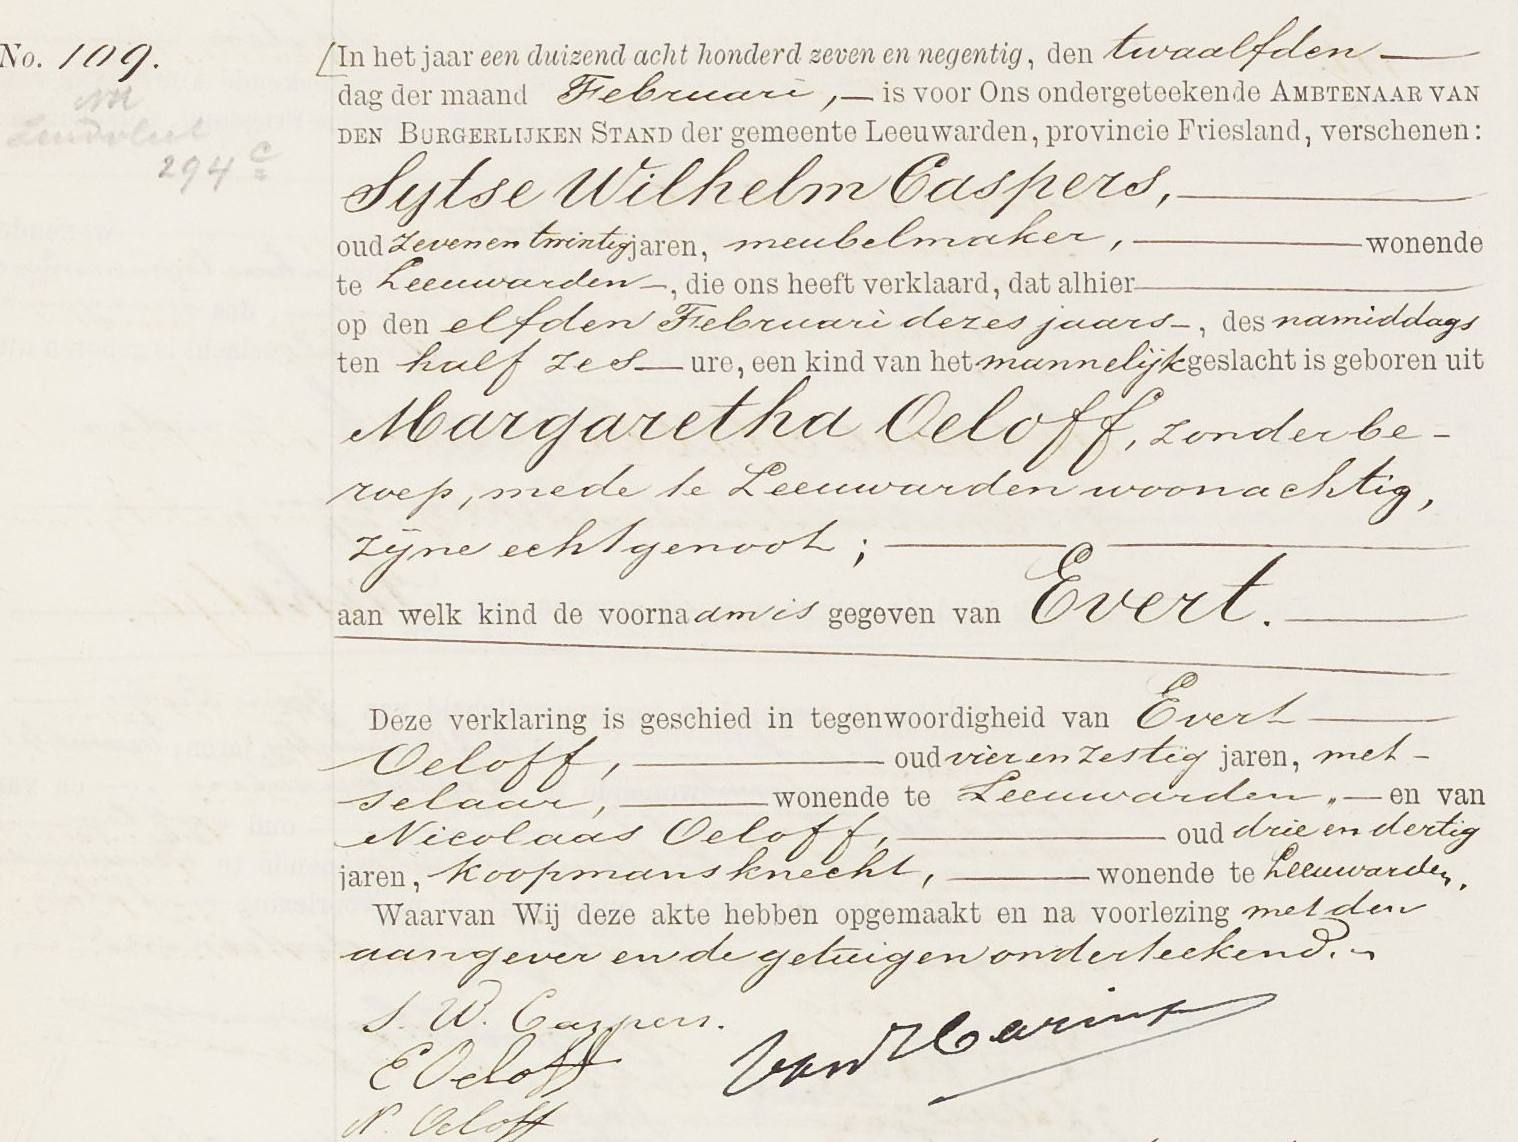 No. 109.
In het jaar een duizend acht honderd zeven en negentig, den twaalfden
dag der maand Februari, is voor Ons ondergeteekende AMBTENAAR VAN
DEN BURGERLIJKEN STAND der gemeente Leeuwarden, provincie Friesland, verschenen:
294 c
Sytse Wilhelm Caspers,
oud zevenentwintig jaren, meubelmaker, wonende
te Leeuwarden, die ons heeft verklaard, dat alhier
op den elfden Februari dezes jaars, des namiddags
ten half zes ure, een kind van het mannelijk geslacht is geboren uit
Margaretha Oeloff, zonder be-
roep, mede te Leeuwarden woonachtig,
zijne echtgenoot;
aan welk kind de voornaam is gegeven van Evert.
Deze verklaring is geschied in tegenwoordigheid van Evert
Oeloff, oud vierenzestig jaren, met-
selaar, wonende te Leeuwarden, en van
Nicolaas Oeloff, oud drie en dertig
jaren, koopmansknecht, wonende te Leeuwarden.
Waarvan Wij deze akte hebben opgemaakt en na voorlezing met den
aangever en de getuigen onderteekend.
S. W. Caspers.
E Oeloff
N. Oeloff